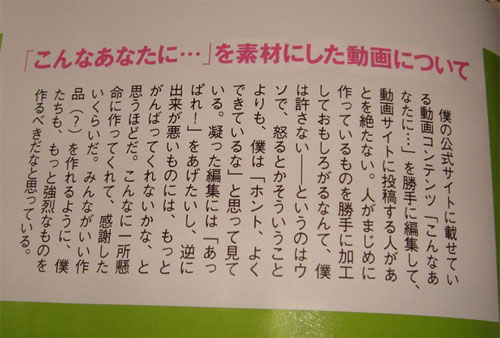 「こんなあなたに…」を素材にした動画について
僕の公式サイトに載せてい
る動画コンテンツ「こんなあ
なたに…」を勝手に編集して、
動画サイトに投稿する人があ
とを絶たない。人がまじめに
作っているものを勝手に加工
しておもしろがるなんて、僕
は許さない――というのはウ
ソで、怒るとかそういうこと
よりも、僕は「ホント、よく
できているな」と思って見て
いる。凝った編集には「あっ
ぱれ!」をあげたいし、逆に
出来が悪いものには、もっと
がんばってくれないかな、と
思うほどだ。こんなに一所懸
命に作ってくれて、感謝した
いくらいだ。みんながいい作
品(?)を作れるように、僕
たちも、もっと強烈なものを
作るべきだなと思っている。